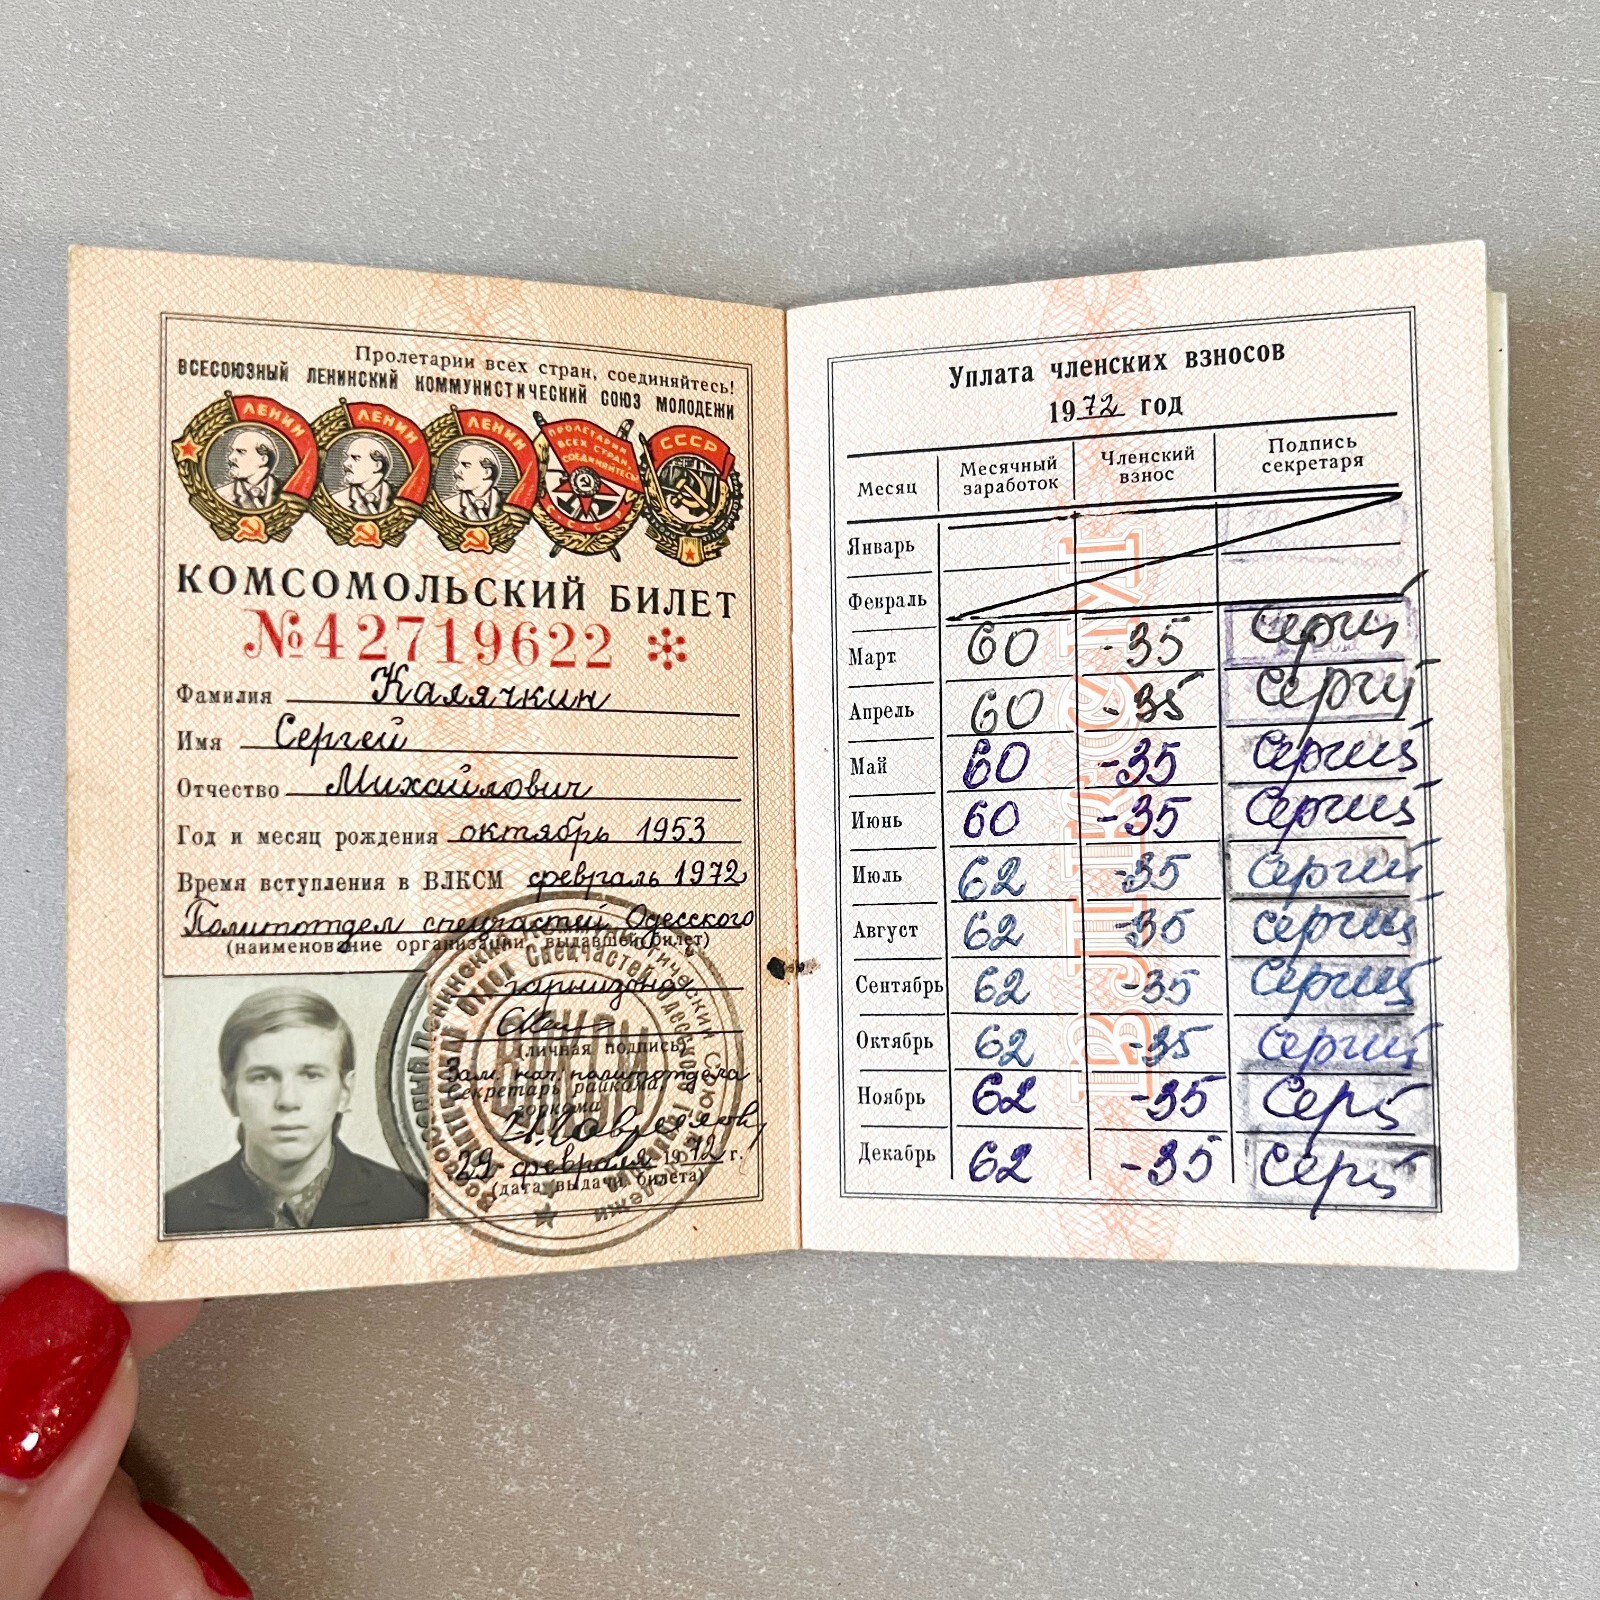 Пролетарии всех стран, соединяйтесь!
ВСЕСОЮЗНЫЙ ЛЕНИНСКИЙ КОММУНИСТИЧЕСКИЙ СОЮЗ МОЛОДЕЖИ
ЛЕНИН ЛЕНИН ЛЕНИН ПРОЛЕТАРИИ ВСЕХ СТРАН, СОЕДИНЯЙТЕСЬ СССР
КОМСОМОЛЬСКИЙ БИЛЕТ
№42719622
Фамилия Калячкин
Имя Сергей
Отчество Михайлович
Год и месяц рождения октябрь 1953
Время вступления в ВЛКСМ февраль 1972
Политотдел спецчастей Одесского
(наименование организации, выдавшей билет)
гарнизона
(личная подпись)
Зам. нач. политотдела
Секретарь райкома,
горкома
29 февраля 1972 г.
(дата выдачи билета)
Уплата членских взносов
1972 год
Месяц Месячный заработок Членский взнос Подпись секретаря
Январь
Февраль
Март 60 -35
Апрель 60 -35
Май 60 -35
Июнь 60 -35
Июль 62 -35
Август 62 -35
Сентябрь 62 -35
Октябрь 62 -35
Ноябрь 62 -35
Декабрь 62 -35
ВЛКСМ